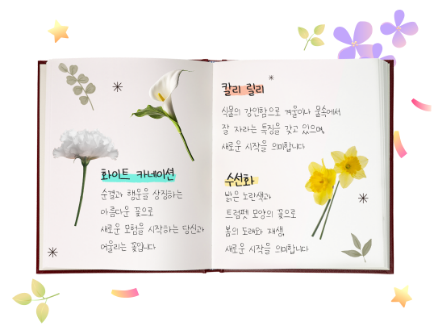 칼라 릴리
식물의 강인함으로 겨울이나 물속에서
잘 자라는 특징을 갖고 있으며,
새로운 시작을 의미합니다
화이트 카네이션
순결과 행운을 상징하는
아름다운 꽃으로
새로운 모험을 시작하는 당신과
어울리는 꽃입니다
수선화
밝은 노란색과
트럼펫 모양의 꽃으로
봄의 도래와 재생,
새로운 시작을 의미합니다